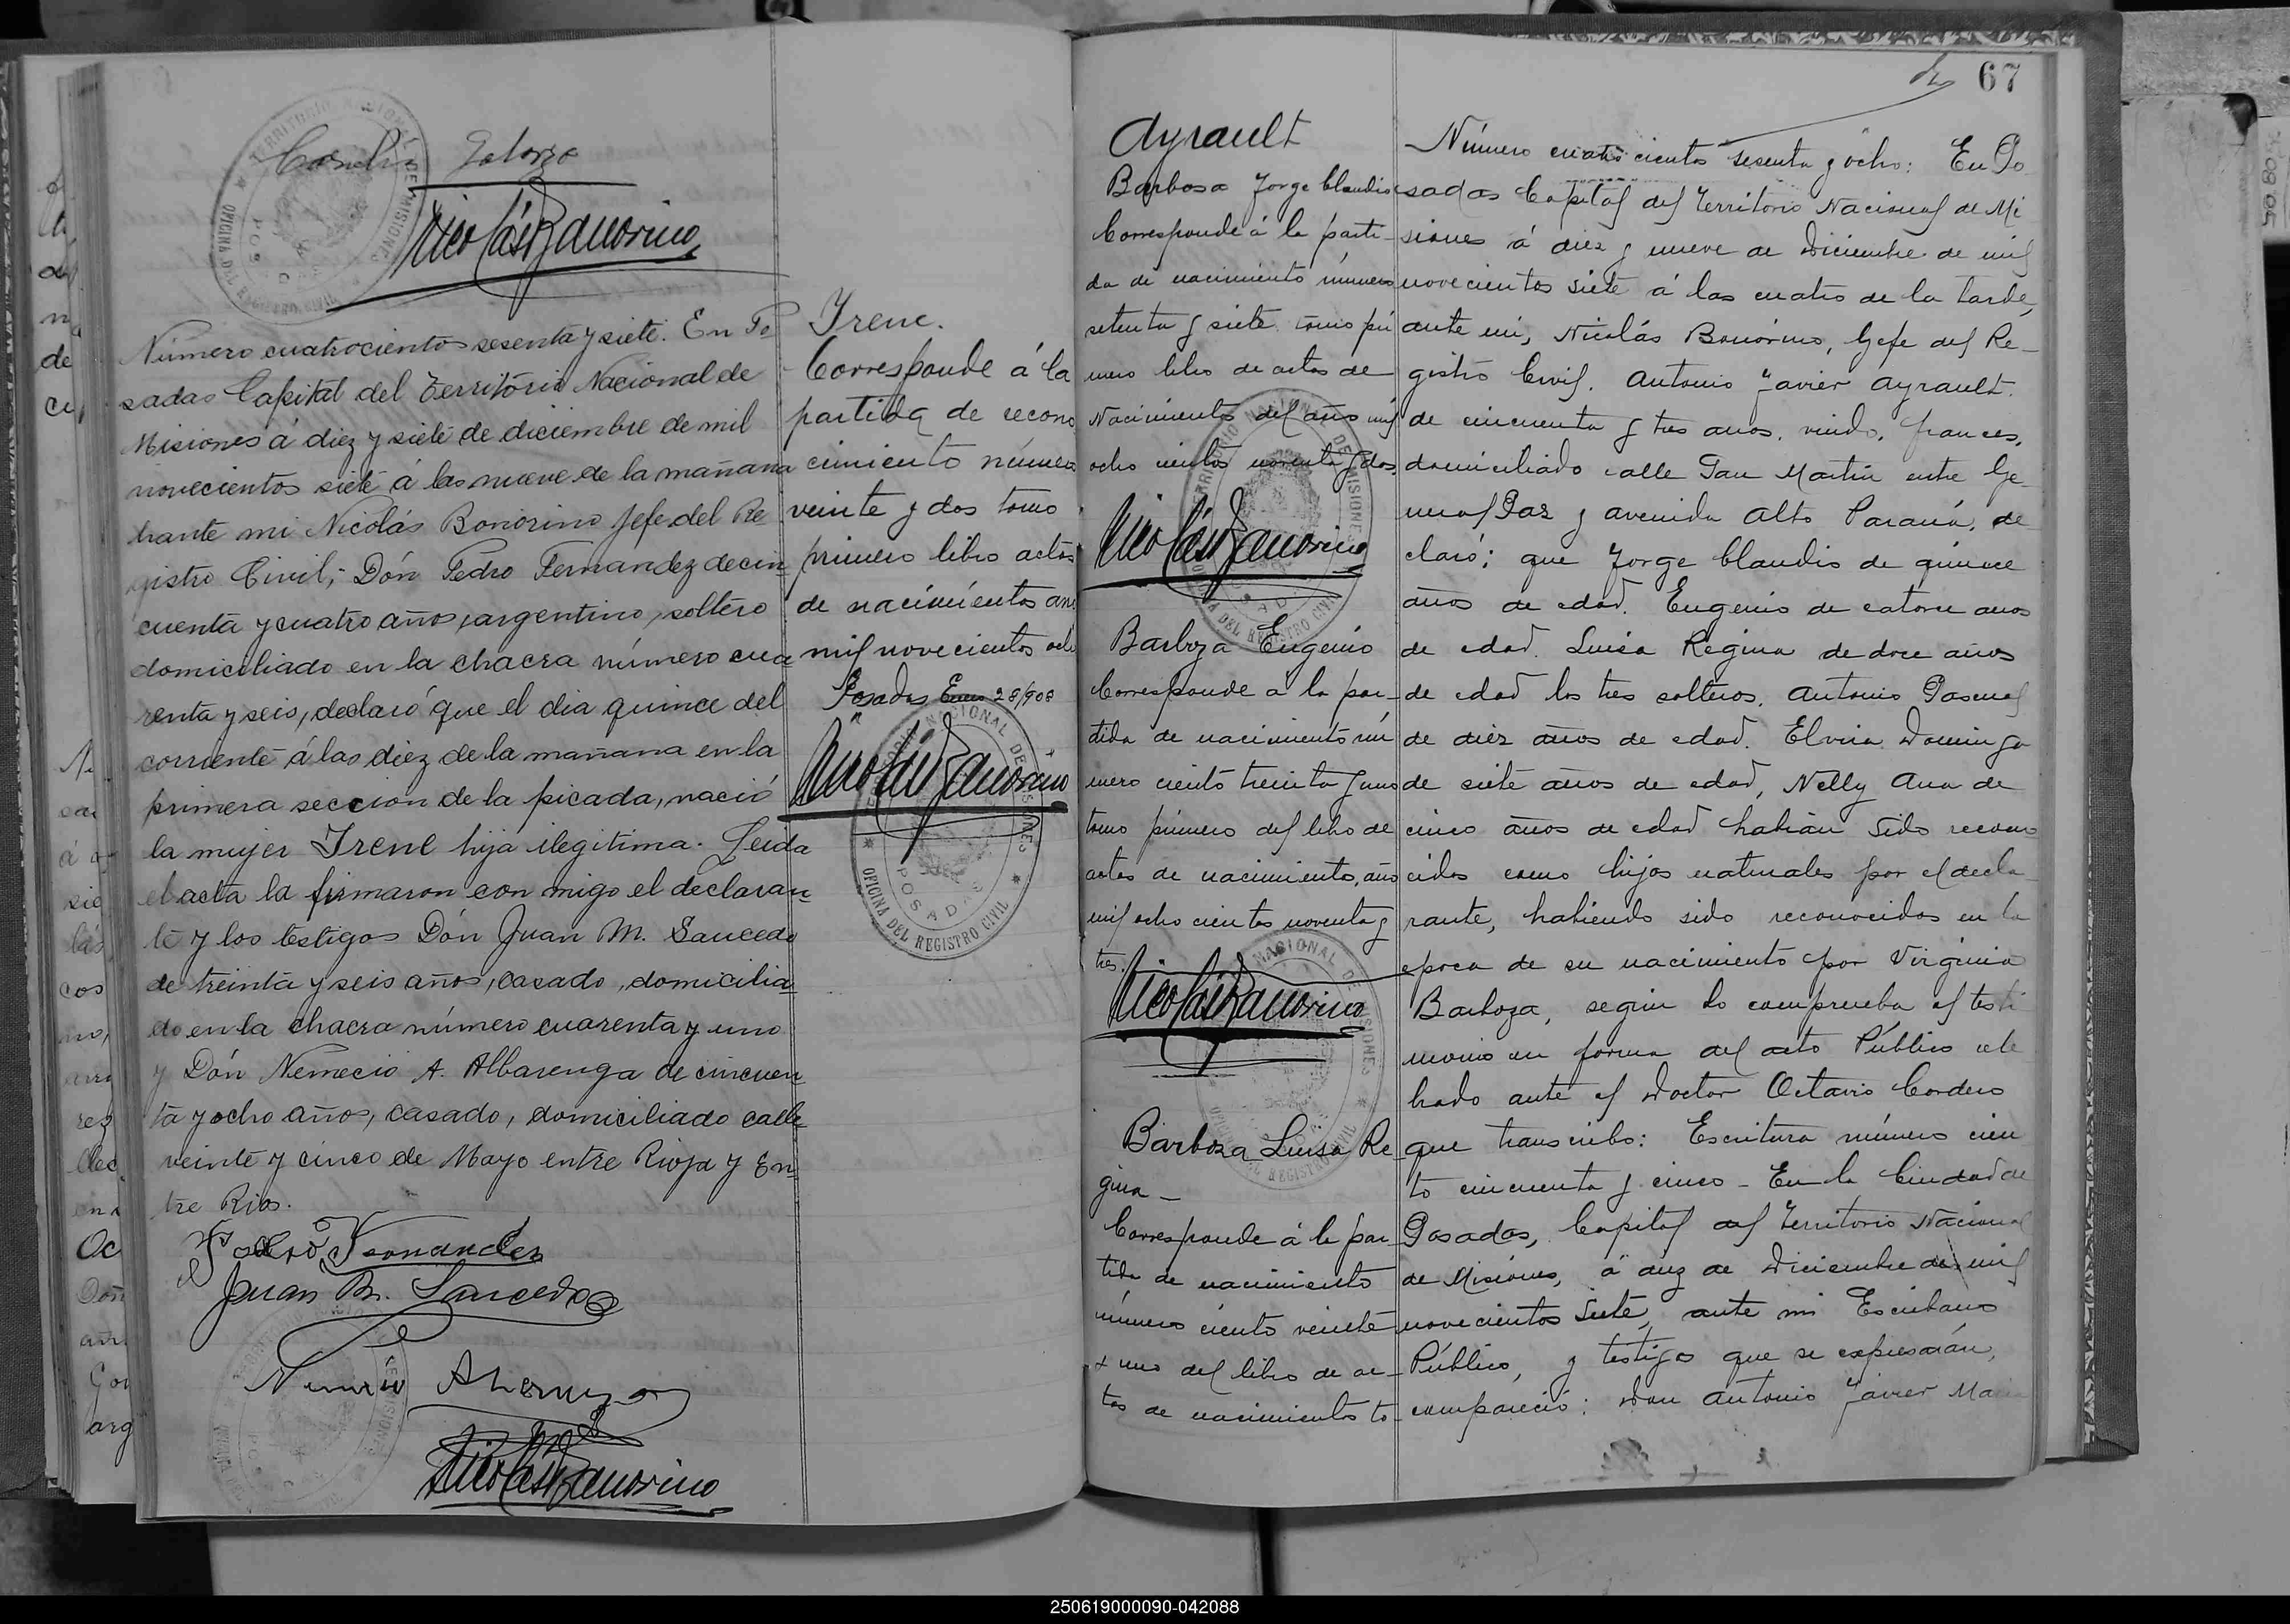 Nicolás Bonorino
Número cuatrocientos sesenta y siete. En Po
sadas Capital del Territorio Nacional de
Misiones á diez y siete de diciembre de mil
novecientos siete á las nueve de la mañana
ante mi Nicolás Bonorino Jefe del Re
gistro Civil; Dón Pedro Fernandez de cin
cuenta y cuatro años, argentino, soltero
domiciliado en la chacra número cua
renta y seis, declaró que el dia quince del
corriente á las diez de la mañana en la
primera seccion de la picada, nació
la mujer Irene hija ilegitima. Leida
el acta la firmaron con migo el declaran
te y los testigos Dón Juan M. Saucedo
de treinta y seis años, casado, domicilia
do en la chacra número cuarenta y uno
y Dón Nemecio A. Albarenga de cincuen
ta y ocho años, casado, domiciliado calle
veinte y cinco de Mayo entre Rioja y En
tre Rios.
Pedro Fernandez
Juan B. Saucedo
Nicolás Bonorino
Irene.
Corresponde á la
partida de recono
cimiento número
veinte y dos tomo
primero libro actas
de nacimientos año
mil novecientos ocho
Posadas Enero 28/908
Nicolás Bonorino
TERRITORIO NACIONAL DE MISIONES
OFICINA DEL REGISTRO CIVIL
POSADAS
67
Ayrault
Barbosa Jorge Claudio
Corresponde á la parti-
da de nacimiento número
setenta y siete tomo pri
mero libro de actas de
Nacimientos del año mil
ocho cientos noventa y dos.
Nicolás Bonorino
Barboza Eugenio
Corresponde á la par-
tida de nacimiento nú
mero ciento treinta y uno
tomo primero del libro de
actas de nacimiento, año
mil ocho cientos noventa y
tres.
Nicolás Bonorino
Barboza Luisa Re
gina_
Corresponde á la par
tida de nacimiento
número ciento veinte
y uno del libro de ac-
tas de nacimientos to-
Número cuatrocientos sesenta y ocho: En Po
sadas Capital del Territorio Nacional de Mi
siones á diez y nueve de Diciembre de mil
novecientos siete á las cuatro de la tarde,
ante mi, Nicolás Bonorino, Gefe del Re-
gistro Civil. Antonio Javier Ayrault.
de cincuenta y tres anos. viudo, frances,
domiciliado calle San Martin entre Ge-
neral Paz y avenida Alto Paraná, de
claró: que Jorge Claudio de quince
años de edad. Eugenio de catorce anos
de edad. Luisa Regina de doce años
de edad los tres solteros. Antonio Pascual
de diez años de edad. Elvira Dominga
de siete años de edad, Nelly Ana de
cinco años de edad habian sido recono
cidos como hijos naturales por el decla-
rante, habiendo sido reconocidos en la
epoca de su nacimiento por Virginia
Barboza, segun lo comprueba el testi
monio en forma del acto Público cele
brado ante el Doctor Octavio Cordero
que transcribo: Escritura número cien
to cincuenta y cinco - En la Ciudad de
Posadas, Capital del Territorio Nacional
de Misiones, á diez de Diciembre de mil
novecientos siete, ante mi Escribano
Público, y testigos que se expresarán,
compareció: Don Antonio Javier Maria
250619000090-042088